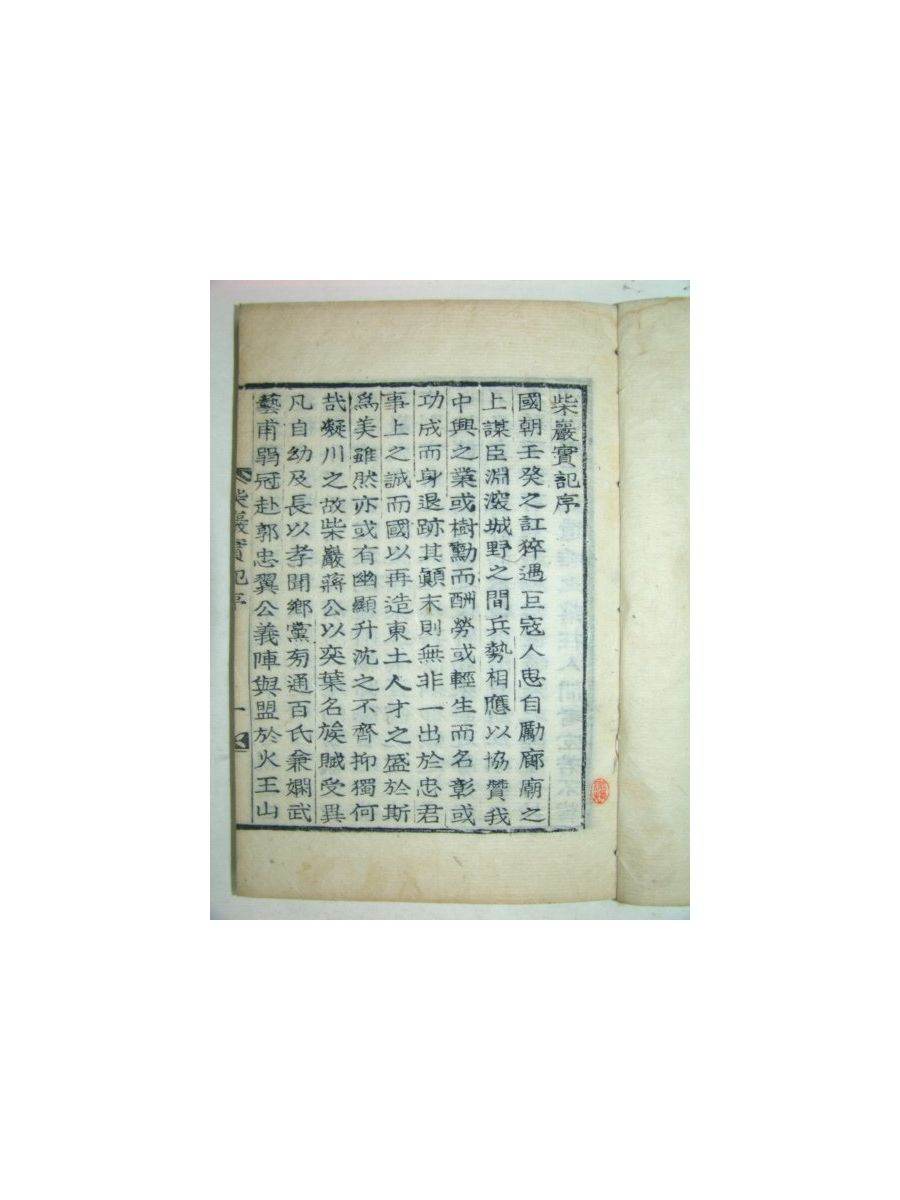 柴巖實記序
國朝壬癸之訌猝遇巨寇人思自勵廊廟之
上謀臣淵濴城野之間兵勢相應以協贊我
中興之業或樹勳而酬勞或輕生而名彰或
功成而身退跡其顚末則無非一出於忠君
事上之誠而國以再造東土人才之盛於斯
爲美雖然亦或有幽顯升沈之不齊抑獨何
哉凝川之故柴巖蔣公以奕葉名族賦受異
凡自幼及長以孝聞鄉黨旁通百氏兼嫻武
藝甫弱冠赴郭忠翼公義陣與盟於火王山
柴巖實記序
一